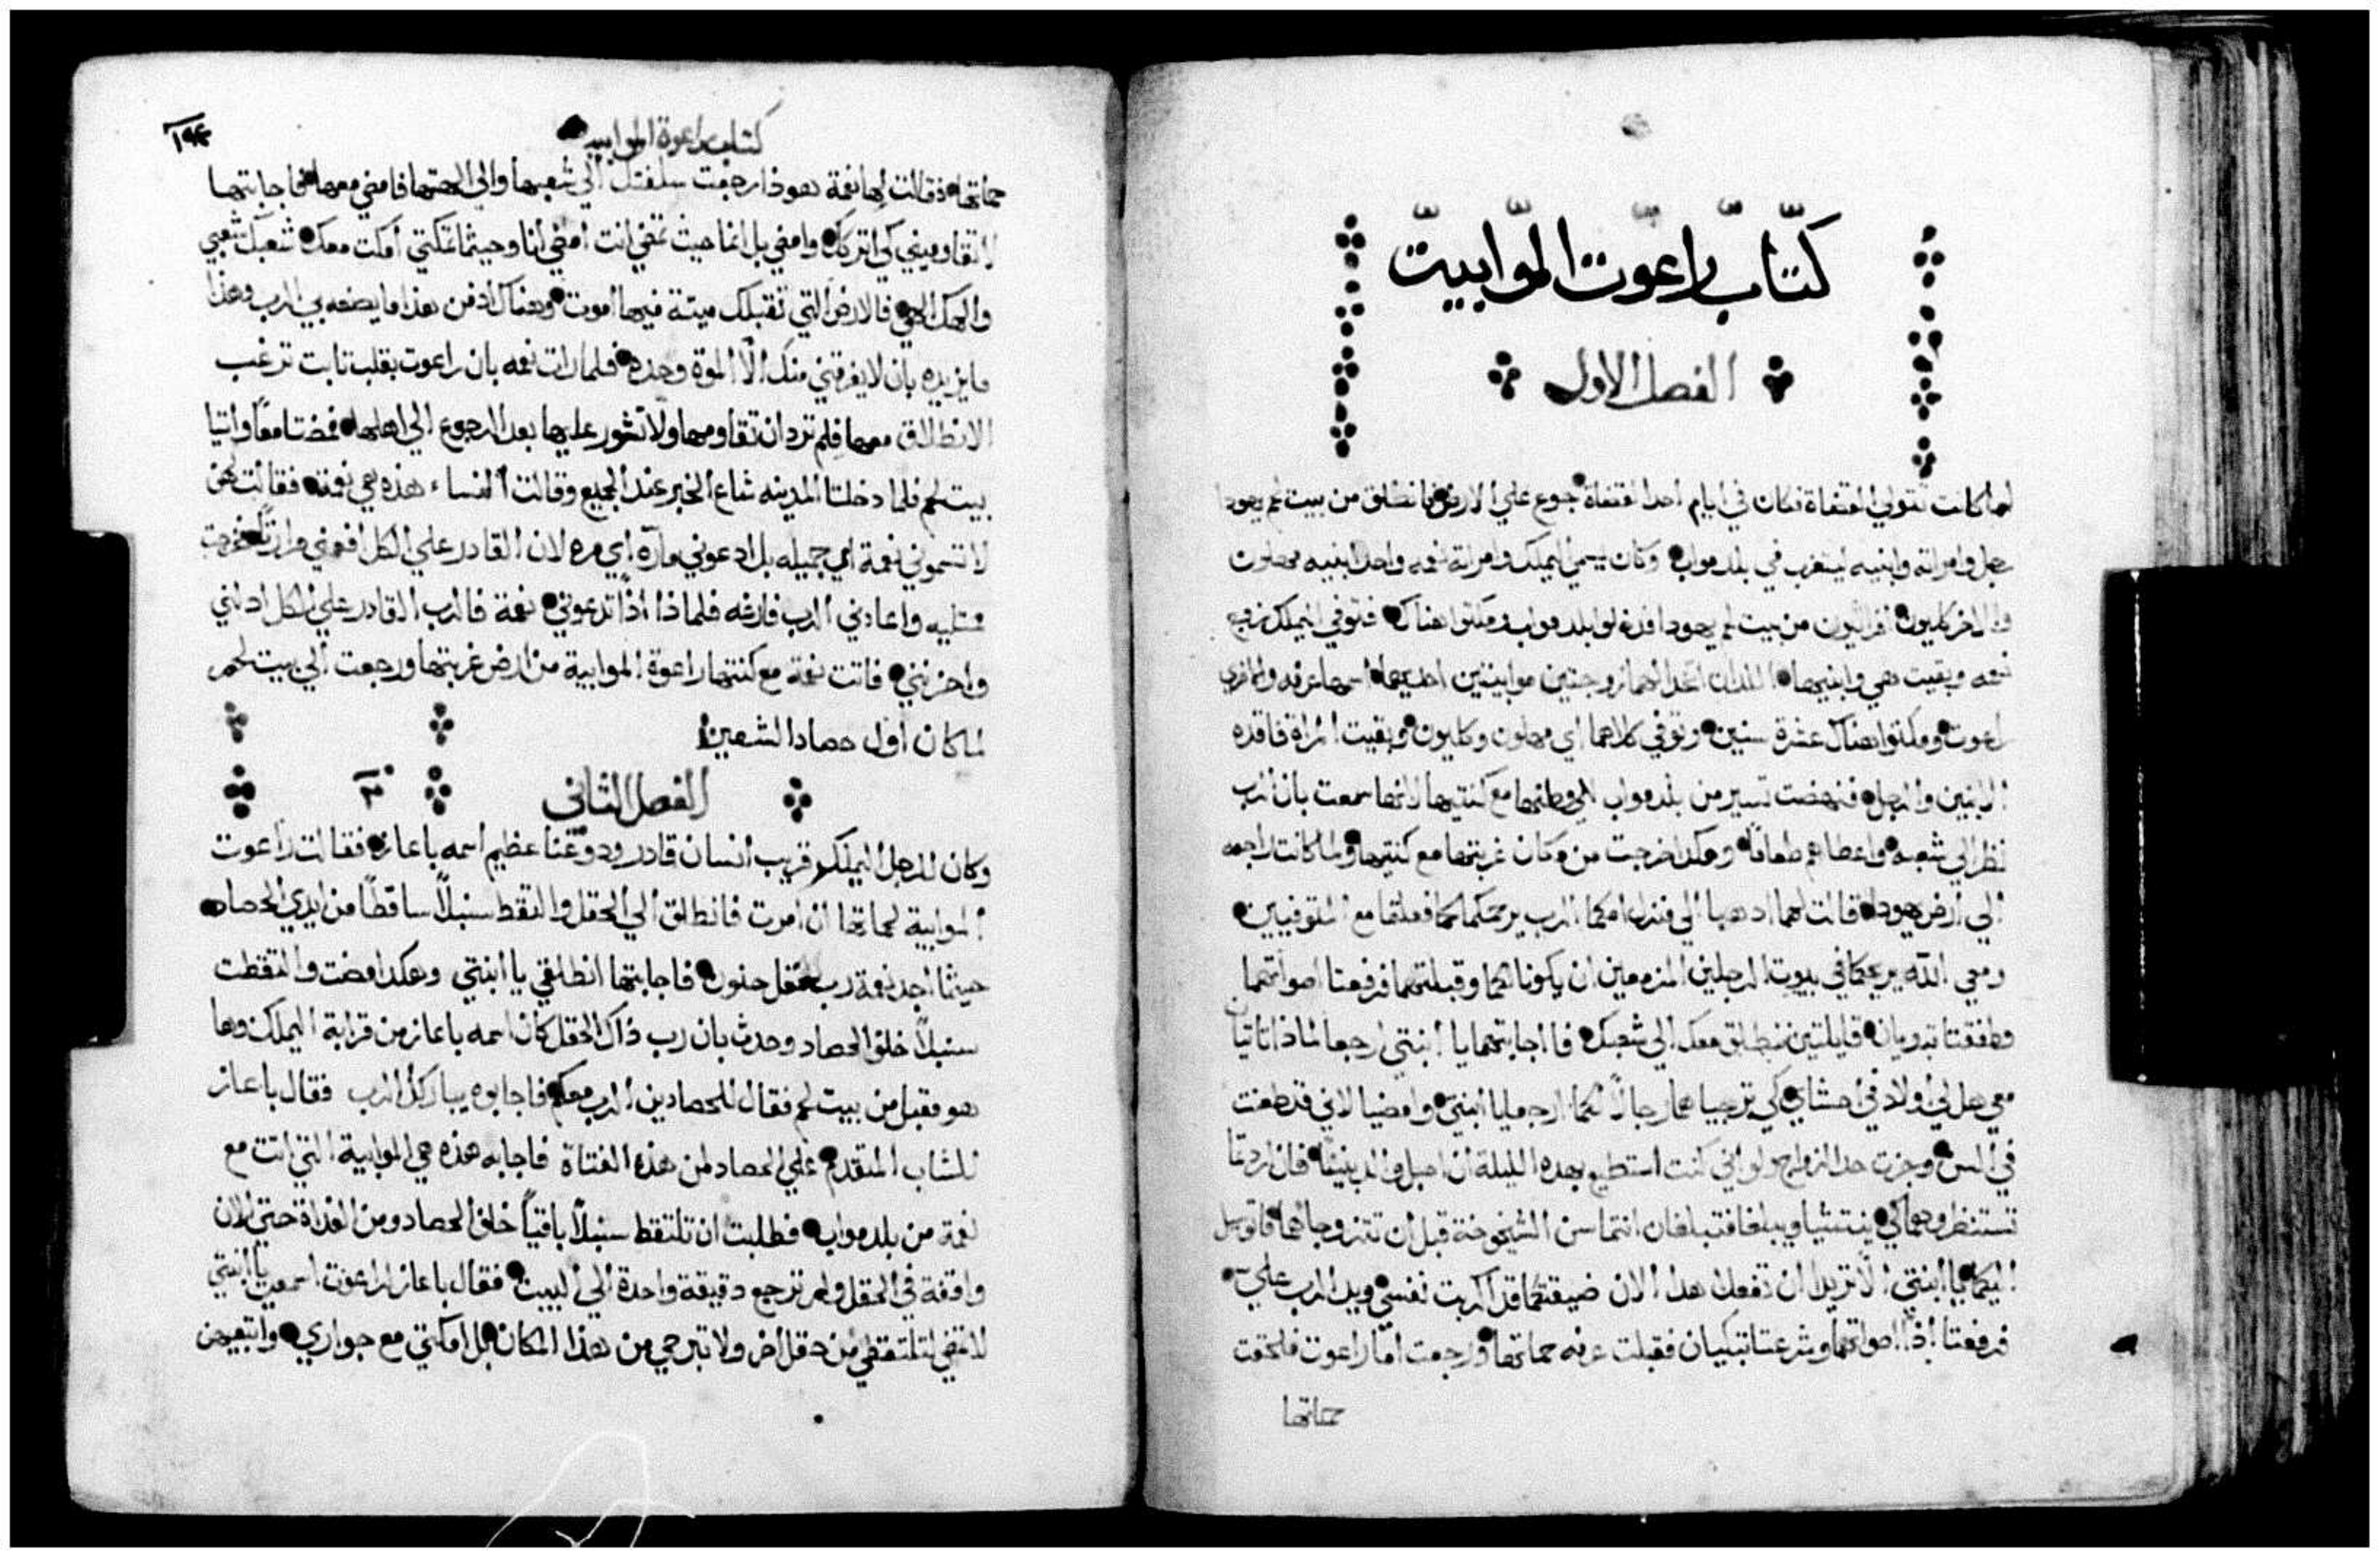 كتاب راعوت الموابيت
الفصل الاول
لما كانت تتولى القضاة فكان في ايام احد القضاة جوع علي الارض فانطلق من بيت لحم يهودا
رجل وامراته وابنيه ليتغرب في بلد مواب وكان يسمي اليملك وامراته نعمه واحد ابنيه محلون
والاخر كليون افراتيون من بيت لحم يهودا فدخلوا بلد مواب ومكثوا هناك فتوفي اليملك زوج
نعمه وبقيت هي وابنيها اللدان اتخدا لهما زوجتين موابيتين احديهما اسمها عرفه والاخري
راعوت ومكثوا هناك عشرة سنين وتوفي كلاهما اي محلون وكليون وبقيت المراة فاقده
الابنين والرجل فنهضت تسير من بلد مواب الي وطنها مع كنتيها لانها سمعت بان الرب
نظر الي شعبه واعطاهم طعامًا وهكدا خرجت من مكان غربتها مع كنتيها ولما كانت راجعه
الي ارض يهودا قالت لهما ادهبا الي منزل امكما الرب يرحمكما كما فعلتما مع المتوفيين
ومعي الله يريحكما في بيوت الرجلين المزمعين ان يكونا لكما وقبلتهما فرفعتا اصواتهما
وطفقتا تبديان قايلتين ننطلق معك الي شعبك فااجابتهما يا ابنتي ارجعا لماذا تاتيا
معي هل لي اولاد في احشاي كي ترجيا هما رجالًا لكما ارجعا يا ابنتيّ وامضيا لاني قد طعنت
في السن وجزت حد الزواج ولو اني كنت استطيع بهده الليلة ان احبل والد بنينًا فان اردتما
تستنظروهما كي ينتشيا ويبلغا فتبلغان انتما سن الشيخوخة قبل ان تتزوجا بهما فاتوسل
اليكما يا ابنتي الّا تريدا ان تفعلا هدا الان ضيقتكما قد اكربت نفسي ويد الرب عليّ
فرفعتا اذًا اصواتهما وشرعتا تبكيان فقبلت عرفه حماتها ورجعت اما راعوت فلحقت
حماتها
١٩٤
كتاب راعوة الموابيه
حماتها فقالت لها نعمة هوذا رجعت سلفتك الي شعبها والي الهتها فامضي معها فاجابتها
لا تقاوميني كي اتركك وامضي بل انما حيث تمضي انت امضي انا وحيثما تمكثي امكث معك شعبك شعبي
والهك الهي فالارض التي تقبلك ميتة فيها اموت وهناك ادفن هذا ما يصنعه بي الرب وهذا
ما يزيده بان لا يفرقني منك الّا الموة وحده فلما رات نعمه بان راعوت بقلب ثابت ترغب
الانطلاق معها فلم ترد ان تقاومها ولا تشور عليها بعد الرجوع الي اهلها فمضتا معًا واتيا
بيت لحم فلما دخلتا المدينه شاع الخبر عند الجميع وقالت النساء هذه هي نعمة فقالت لهن
لا تسموني نعمة اي جميله بل ادعوني مارّه اي مره لان القادر علي الكل افعمني مرارتًا خرجت
ممتليه واعادني الرب فارغه فلماذا اذًا تدعوني نعمة فالرب القادر علي الكل ادلني
واحزنني فاتت نعمة مع كنتها راعوة الموابية من ارض غربتها ورجعت الي بيت لحم
لما كان اول حصاد الشعير
الفصل الثاني ٢
وكان للرجل اليملك قريب انسان قادر ودو غنا عظيم اسمه باعاز فقالت راعوت
الموابية لحماتها ان امرت فانطلق الي الحقل والتقط سنبلًا ساقطًا من ايدي الحصاد
حيثما اجد نعمة رب حقل حنون فاجابتها انطلقي يا ابنتي وهكدا مضت والتقطت
سنبلًا خلف الحصاد وحدث بان رب ذاك الحقل كان اسمه باعاز من قرابة اليملك وها
هو مقبل من بيت لحم فقال للحصادين الرب معكم فاجابوه يباركك الرب فقال باعاز
للشاب المتقدم علي الحصاد لمن هذه الفتاة فاجابه هذه هي الموابية التي اتت مع
نعمة من بلد مواب فطلبت ان تلتقط سنبلًا باقيًا خلف الحصاد ومن الغداة حتي الان
واقفة في الحقل ولم ترجع دقيقة واحدة الي البيت فقال باعاز لراعوت اسمعي يا ابنتي
لا تمضي لتلتقطي من حقل اخر ولا تبرحي من هذا المكان بل امكثي مع جواري واتبعيهن